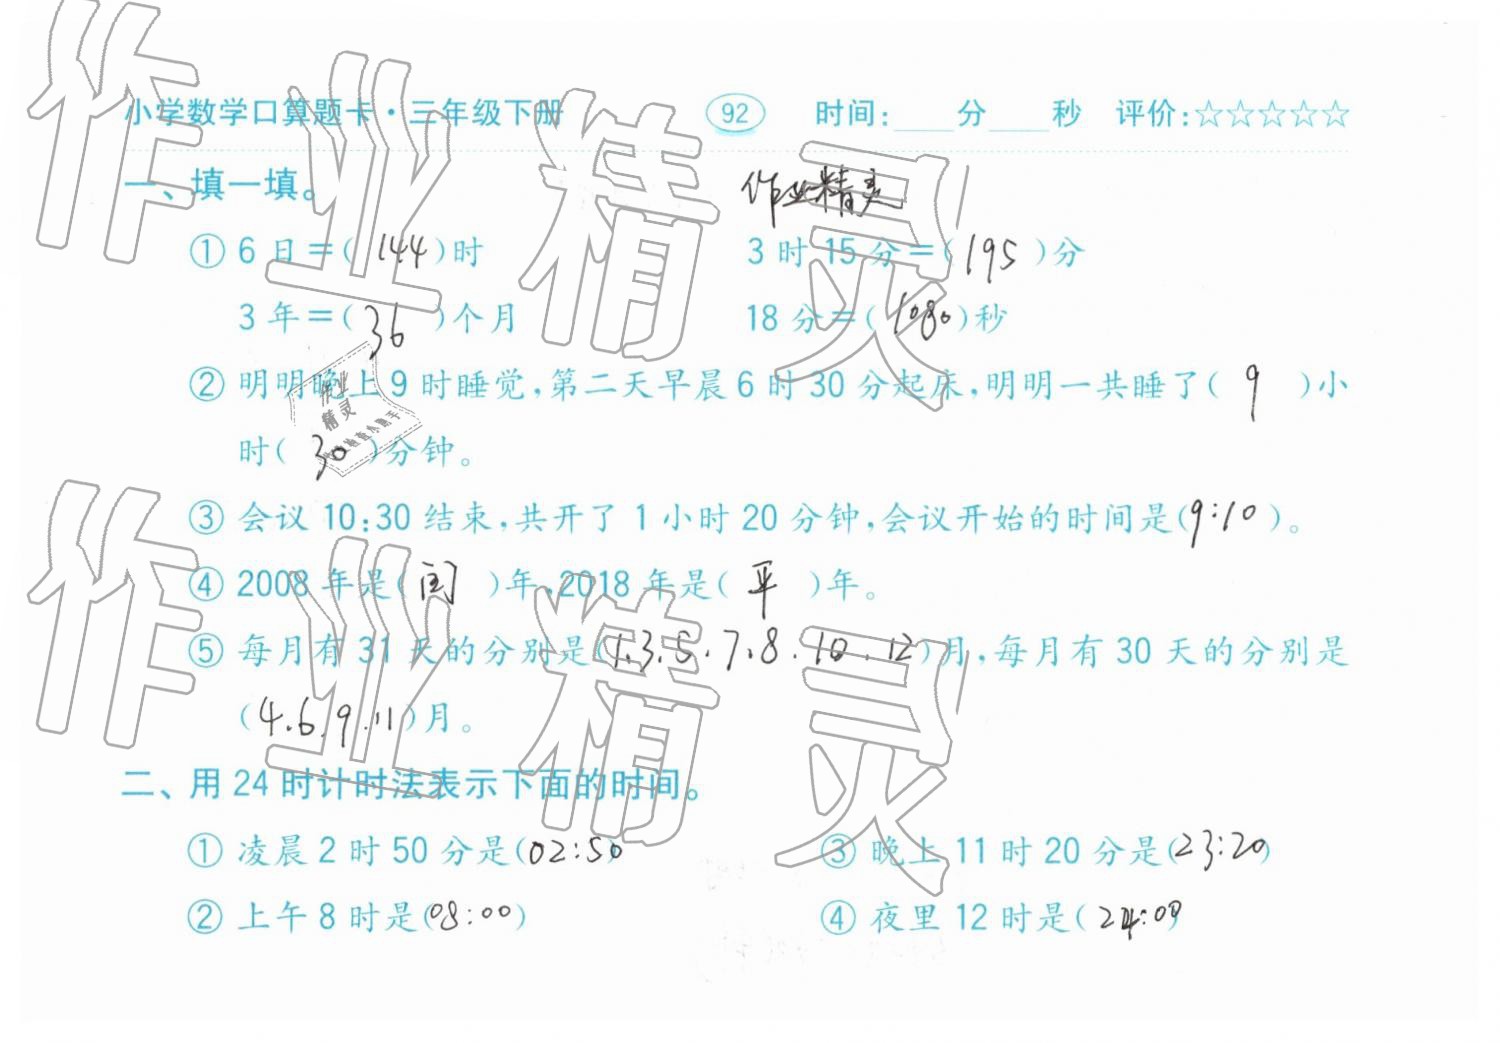 小学数学口算题卡·三年级下册 92 时间:____分____秒 评价:☆☆☆☆☆
一、填一填。 作业精灵
①6日=(144)时 3时15分=(195)分
3年=(36)个月 18分=(1080)秒
②明明晚上9时睡觉,第二天早晨6时30分起床,明明一共睡了(9)小
时(30)分钟。
③会议10:30结束,共开了1小时20分钟,会议开始的时间是(9:10)。
④2008年是(闰)年,2018年是(平)年。
⑤每月有31天的分别是(1.3.5.7.8.10.12)月,每月有30天的分别是
(4.6.9.11)月。
二、用24时计时法表示下面的时间。
①凌晨2时50分是(02:50) ③晚上11时20分是(23:20)
②上午8时是(08:00) ④夜里12时是(24:00)
作业精灵
作业精灵
作业
精灵